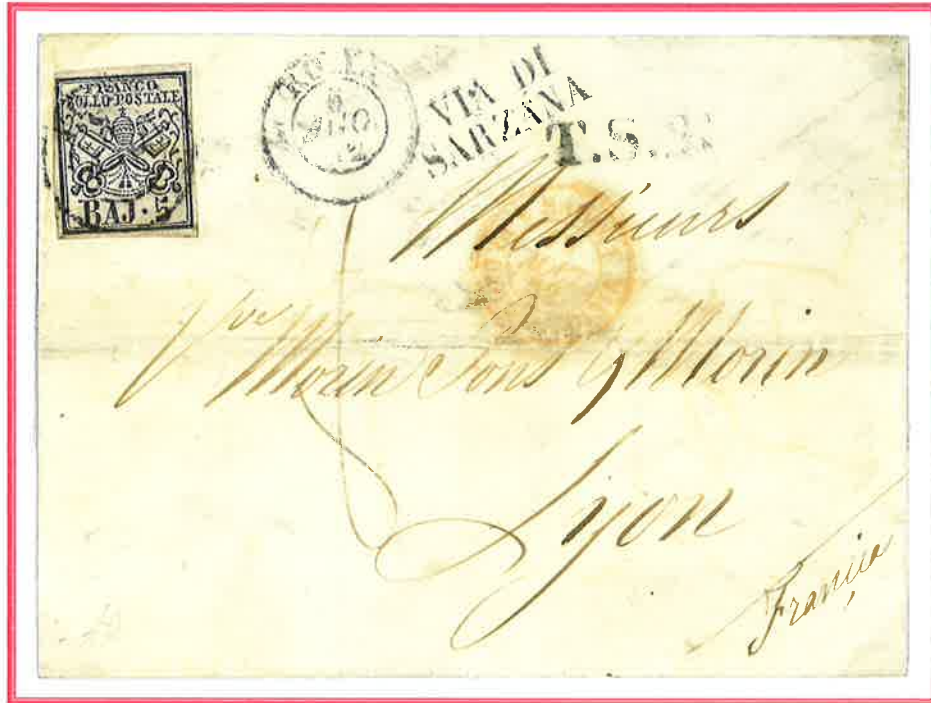 FRANCO
BOLLO POSTALE
BAJ. 5
ROMA
VIA DI
SARZANA
T.S.
Messieurs
Vve Morin Pons & Morin
Lyon
Francia